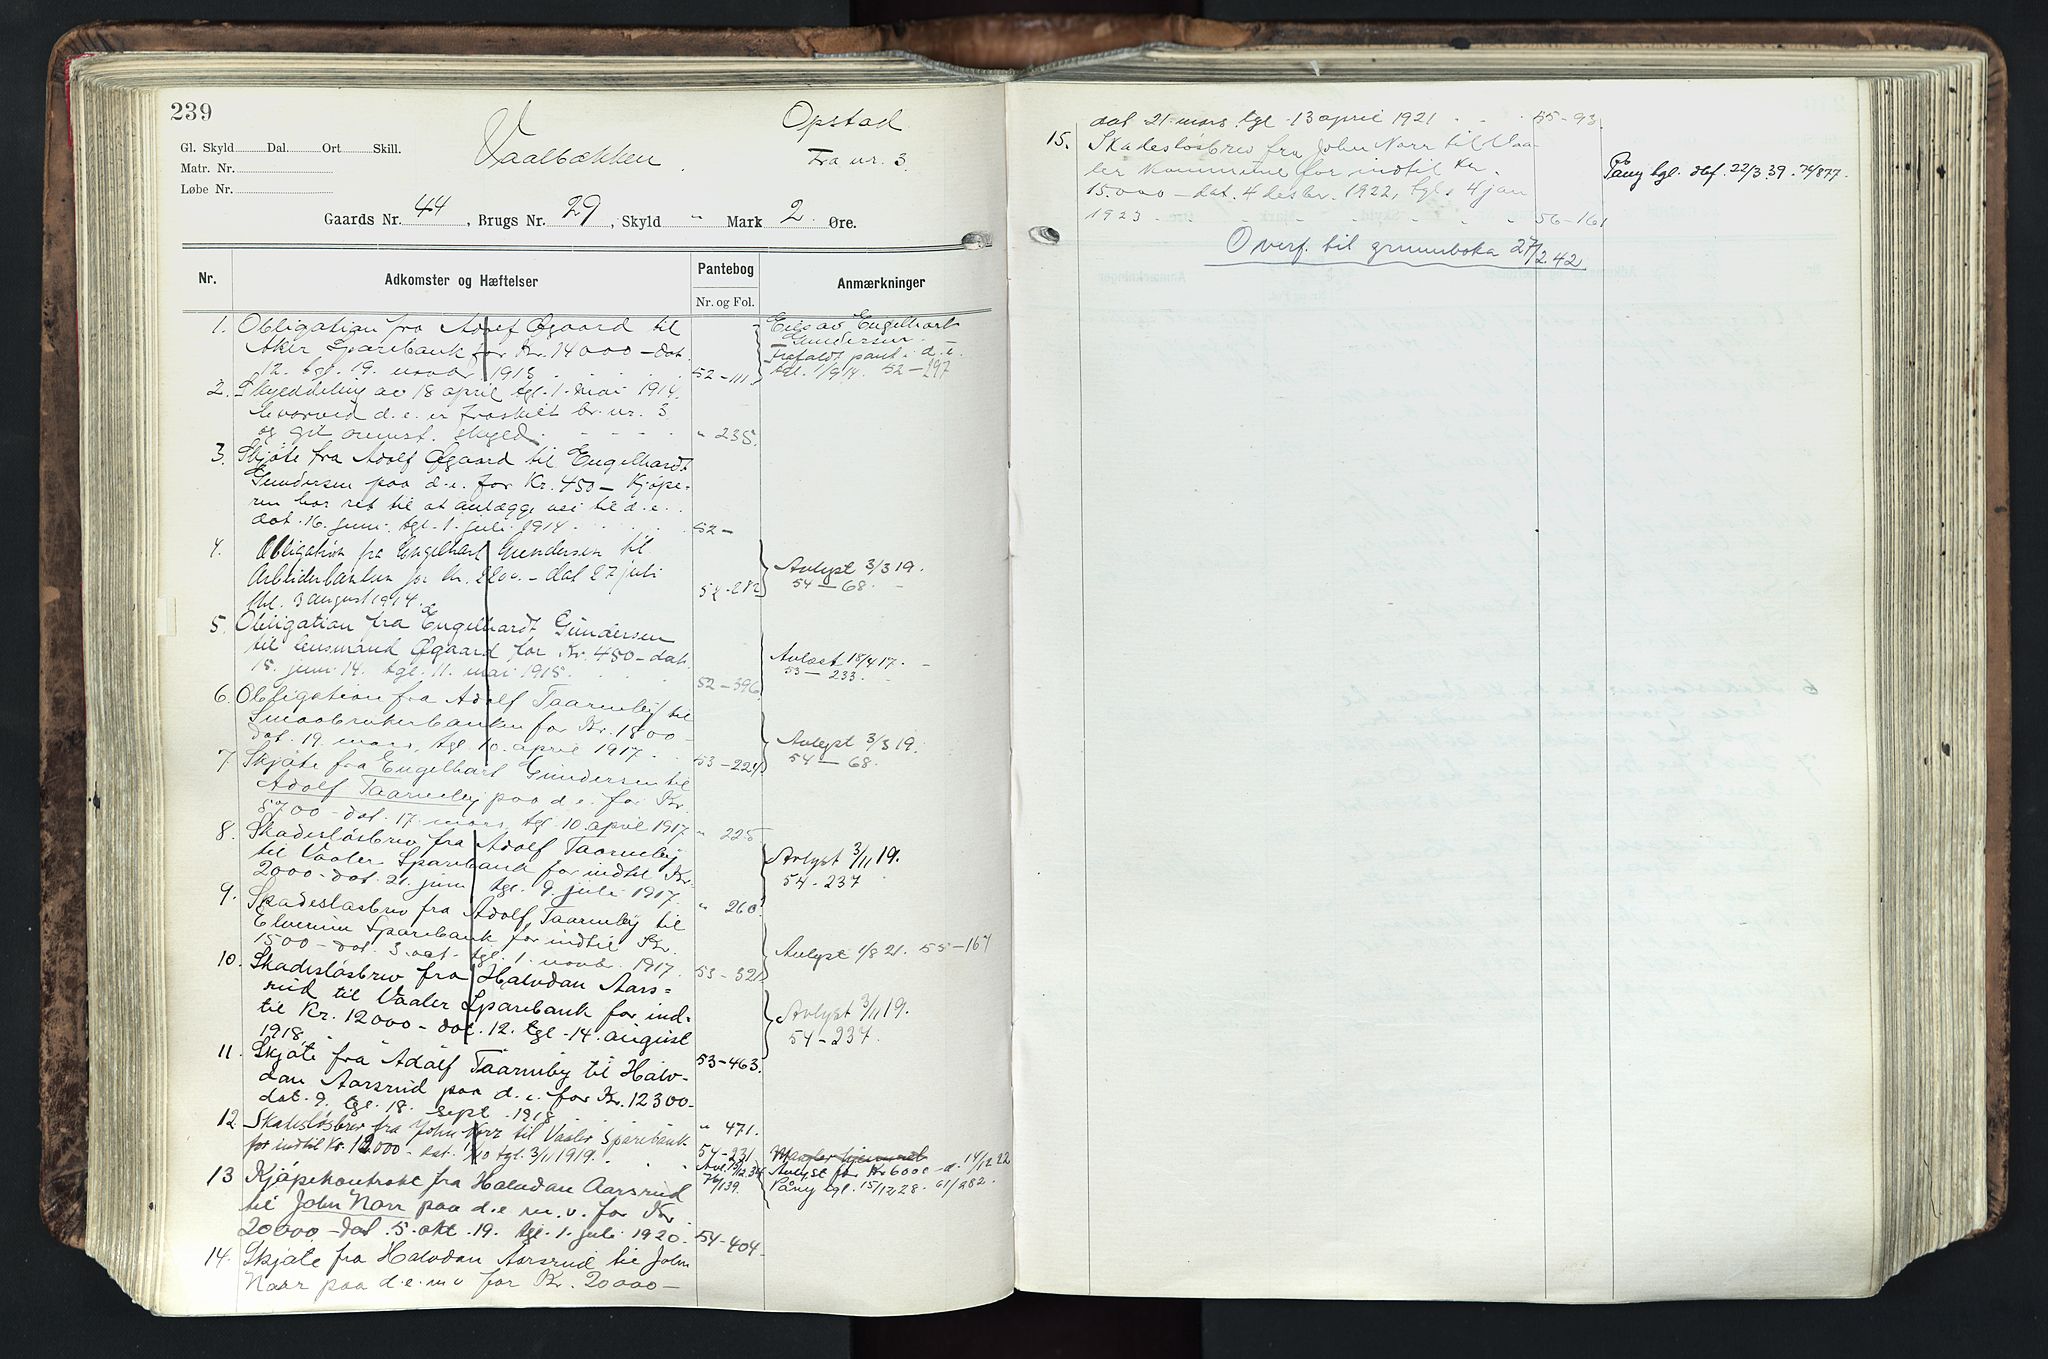 239
Opstad
Gl. Skyld Dal. Ort Skill.
Vaalbækken
Fra nr. 3
Matr. Nr.
Løbe Nr.
Gaards Nr. 44, Brugs Nr. 29, Skyld " Mark 2 Øre.
Nr.
Adkomster og Hæftelser
Pantebog
Nr. og Fol.
Anmærkninger
1. Obligation fra Adolf Øgaard til
Aker Sparebank for Kr. 14000 – dat.
12. tgl. 19. novbr 1913 52 – 111
Eies av Engelhart
Gundersen. –
Frafaldt pant i d. e.
tgl. 1/9 14. 52 – 297
2. Skylddeling av 18 april tgl. 1. mai 1914.
hvorved d. e. er fraskilt br. nr. 3
og git ovenst. skyld. " 235.
3. Skjøte fra Adolf Øgaard til Engelhardt
Gundersen paa d. e. for Kr. 450 – Kjøpe-
ren har ret til at anlægge vei til d. e.
dat. 16. juni. tgl. 1. juli 1914. 52 –
4. Obligation fra Engelhart Gundersen til
Arbeiderbanken for kr. 2200. – dat 27 juli
tgl. 3 august 1914. 52 - 282
Avlyst 3/3 19.
54 – 68. –
5. Obligation fra Engelhardt Gundersen
til lensmand Øgaard for Kr. 450 – dat.
15. juni 14. tgl. 11. mai 1915. 52 – 396
Avlæst 18/4 17. –
53 – 233.
6. Obligation fra Adolf Taarneby til
Smaabrukerbanken for Kr. 1800 –
dat. 19. mars, tgl. 10. april 1917. 53 – 224
Avlyst 3/3 19.
54 – 68.
7. Skjøte fra Engelhart Gundersen til
Adolf Taarneby paa d. e. for Kr.
5700 – dat. 17. mars, tgl. 10. april 1917 " 225
8. Skadesløsbrev fra Adolf Taarneby
til Vaaler Sparebank for indtil Kr.
2000 – dat. 21. juni tgl. 9. juli 1917. " 260.
Avlyst 3/11 19.
54 - 237
9. Skadesløsbrev fra Adolf Taarneby til
Elverum Sparebank for indtil Kr.
1500 – dat. 3. oct. tgl. 1. novbr. 1917. 53 – 321
Avlyst 1/8 21. 55 – 167
10. Skadesløsbrev fra Halvdan Aars=
rud til Vaaler Sparebank for ind=
til Kr. 12000 – dat. 12. tgl. 14. august
1918. 53 – 463.
Avlyst 3/11 19.
54 – 237
11. Skjøte fra Adolf Taarneby til Halv-
dan Aarsrud paa d. e. for Kr. 12300 –
dat. 9. tgl. 18. sept. 1918 " 471.
12. Skadesløsbrev fra John Norr til Vaaler Sparebank
for indtil Kr. 12000 – dat. 1/10 tgl. 3/11 1919. 54 – 231
Avl. 15/12 34
76/139.
Mangler hjemmel
Avlyst for Kr 6000 – d. 14/12 22
Påny tgl. 15/12 28. 61/282.
13 Kjøpekontrakt fra Halvdan Aarsrud
til John Norr paa d. e m. v. for Kr
20000 – dat. 5. okt. 19. tgl. 1. juli 1920. 54 – 404 –
14. Skjøte fra Halvdan Aarsrud til John
Norr paa d. e. m v for Kr. 20000 –
dat 21. mars tgl. 13 april 1921 55 – 93.
15. Skadesløsbrev fra John Norr til Vaa-
ler Kommune for indtil kr.
15000 – dat. 4 desbr. 1922, tgl. 4 jan
1923 56 – 161
Påny tgl. 22/3 39. 74/877.
Overf. til grunnboka 27/2 42